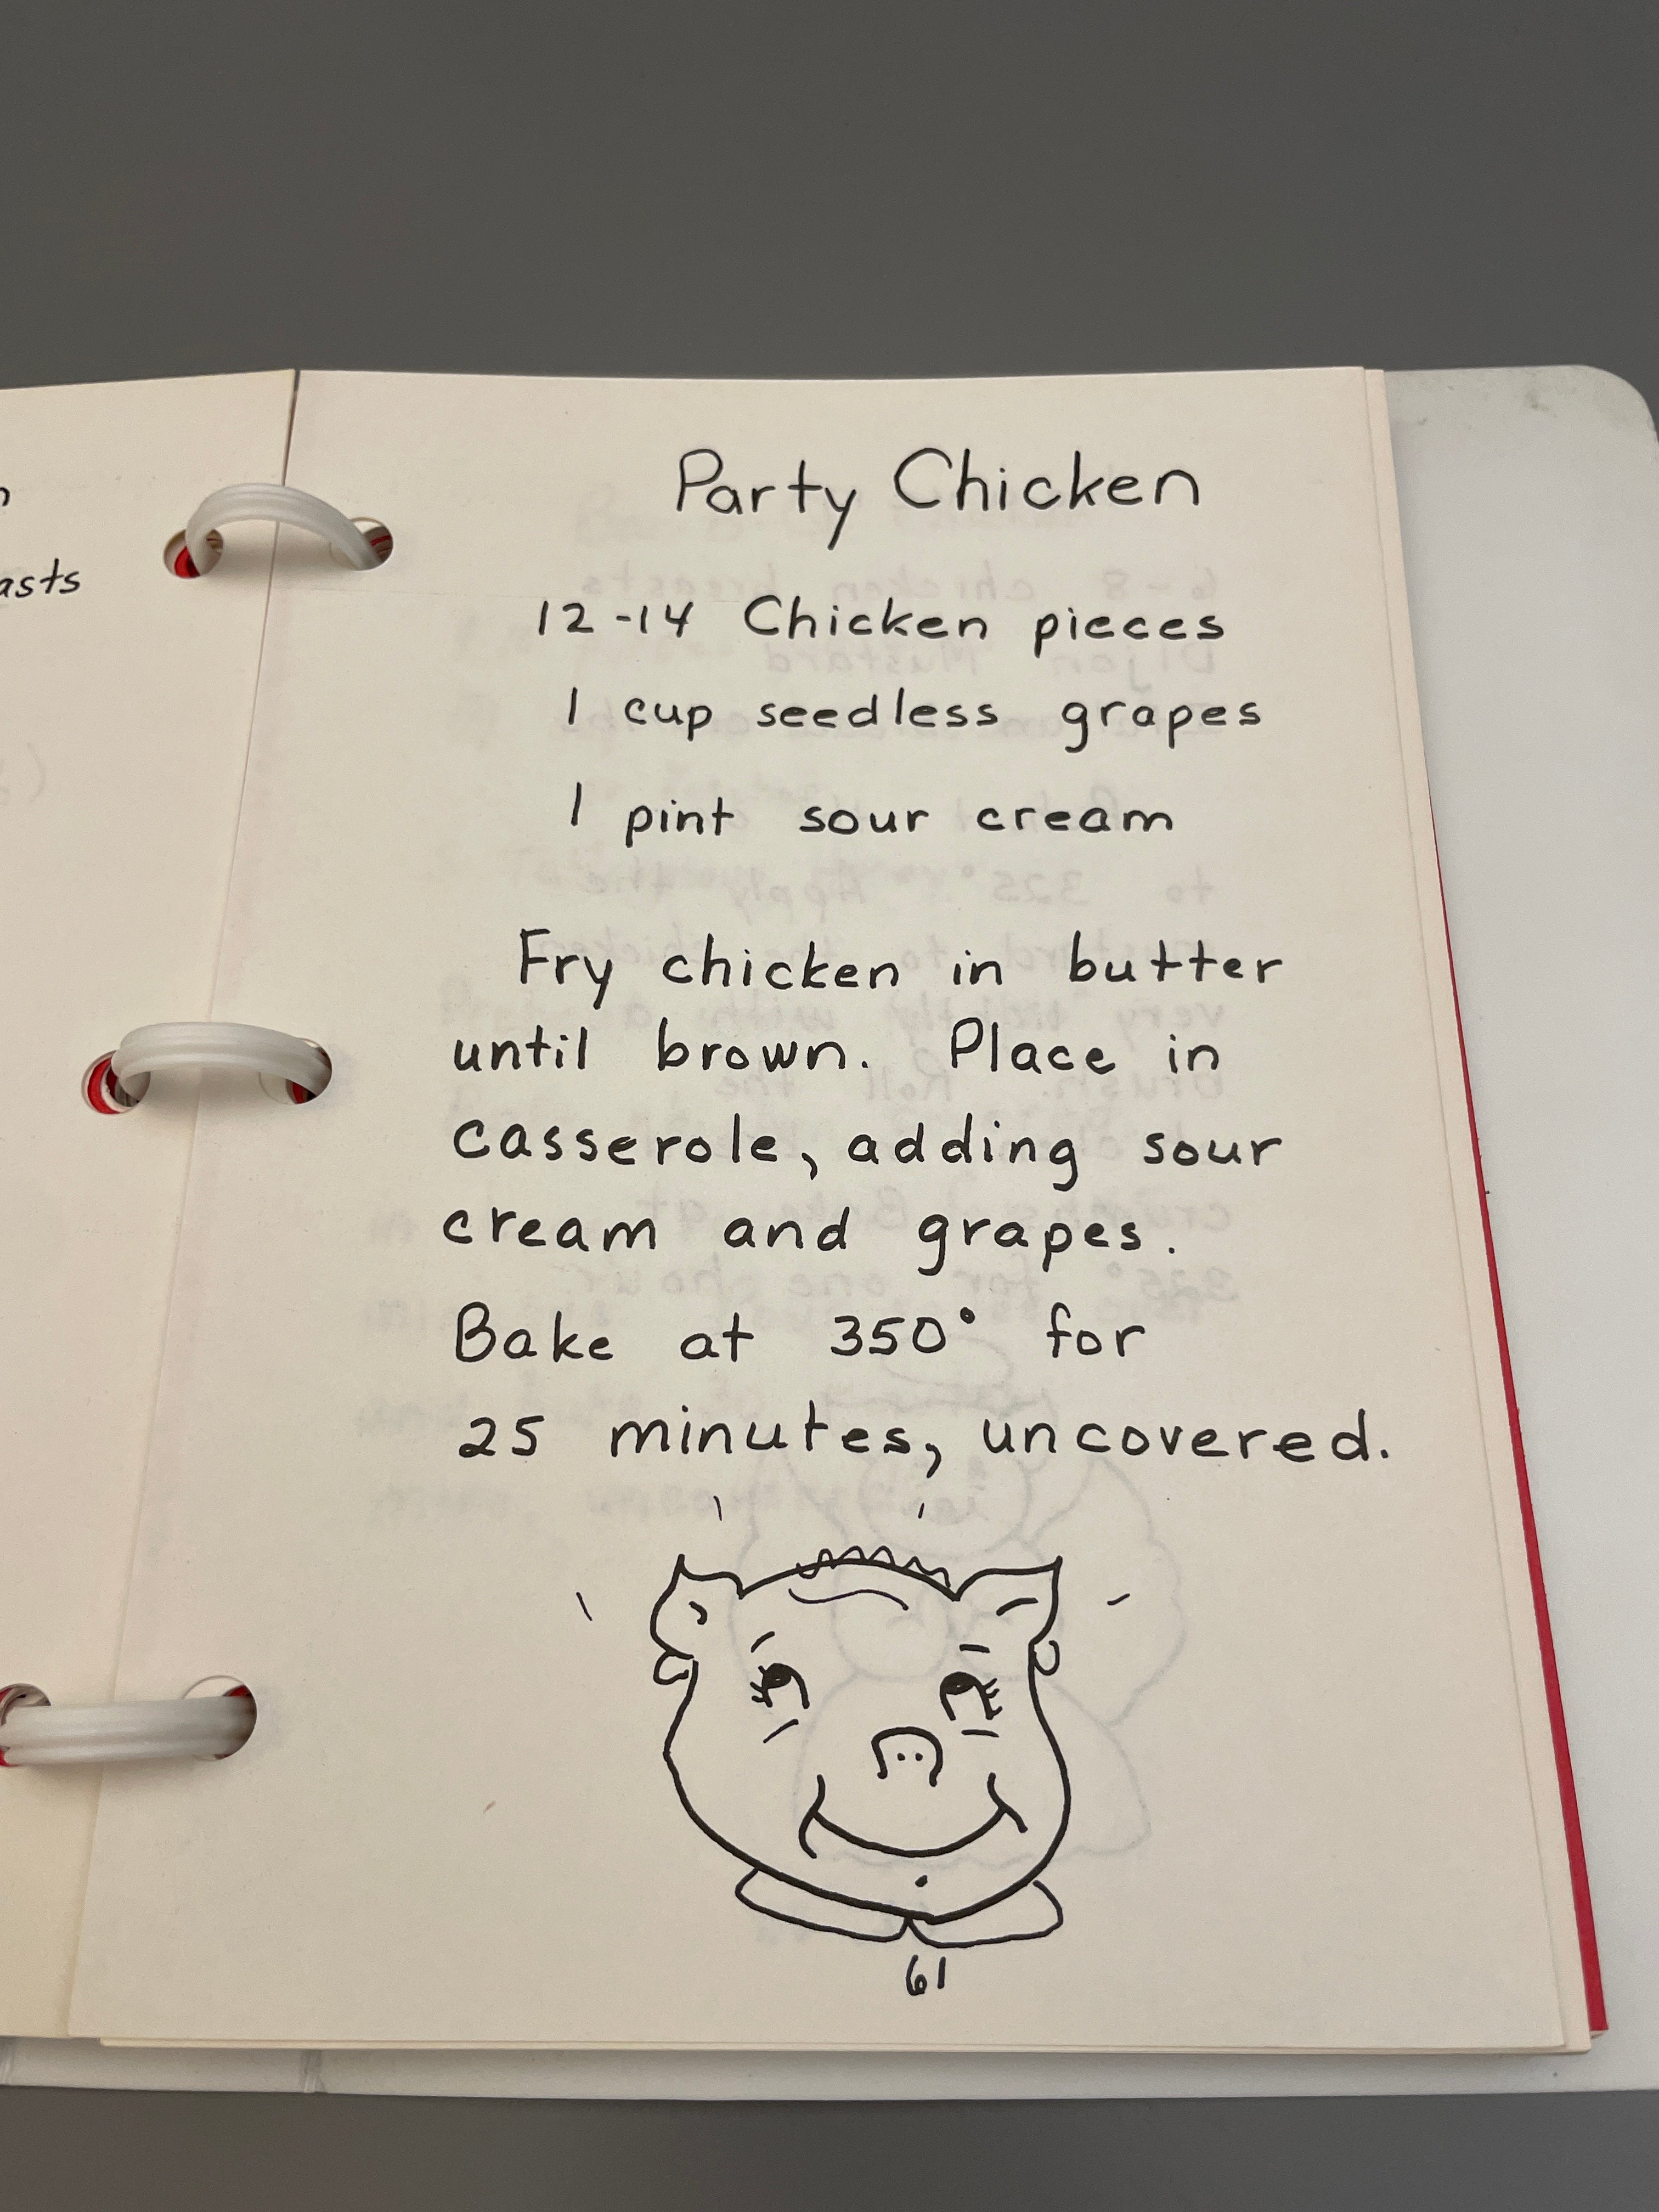 asts
Party Chicken
12-14 Chicken pieces
1 cup seedless grapes
1 pint sour cream
Fry chicken in butter
until brown. Place in
casserole, adding sour
cream and grapes.
Bake at 350° for
25 minutes, uncovered.
61